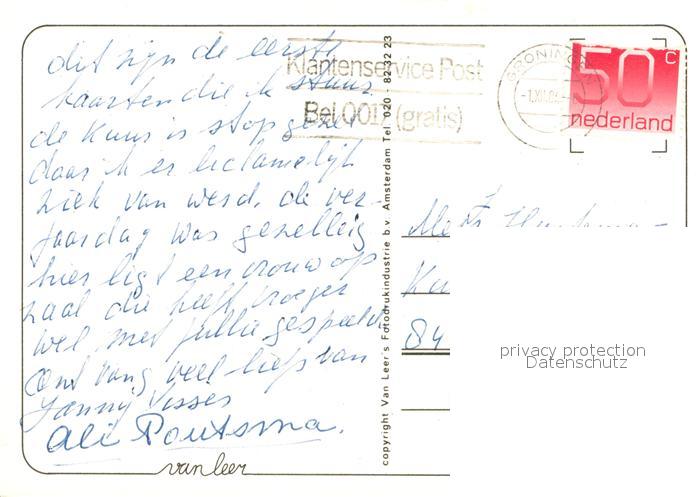 dit zijn de eerste
kaarten die ik stuur
de kuur is stop gezet
daar ik er lichamelijk
ziek van werd. de ver-
jaardag was gezellig
hier ligt een vrouw op
zaal die heeft vroeger
wel met jullie gespeeld
Ontvang veel liefs van
Janny Visser
Ali Poutsma.
van leer
copyright Van Leer's Fotodrukindustrie b.v. Amsterdam Tel. 020 - 82 32 23
Klantenservice Post
Bel 0017 (gratis)
GRONINGEN
50 c
nederland
84
privacy protection
Datenschutz